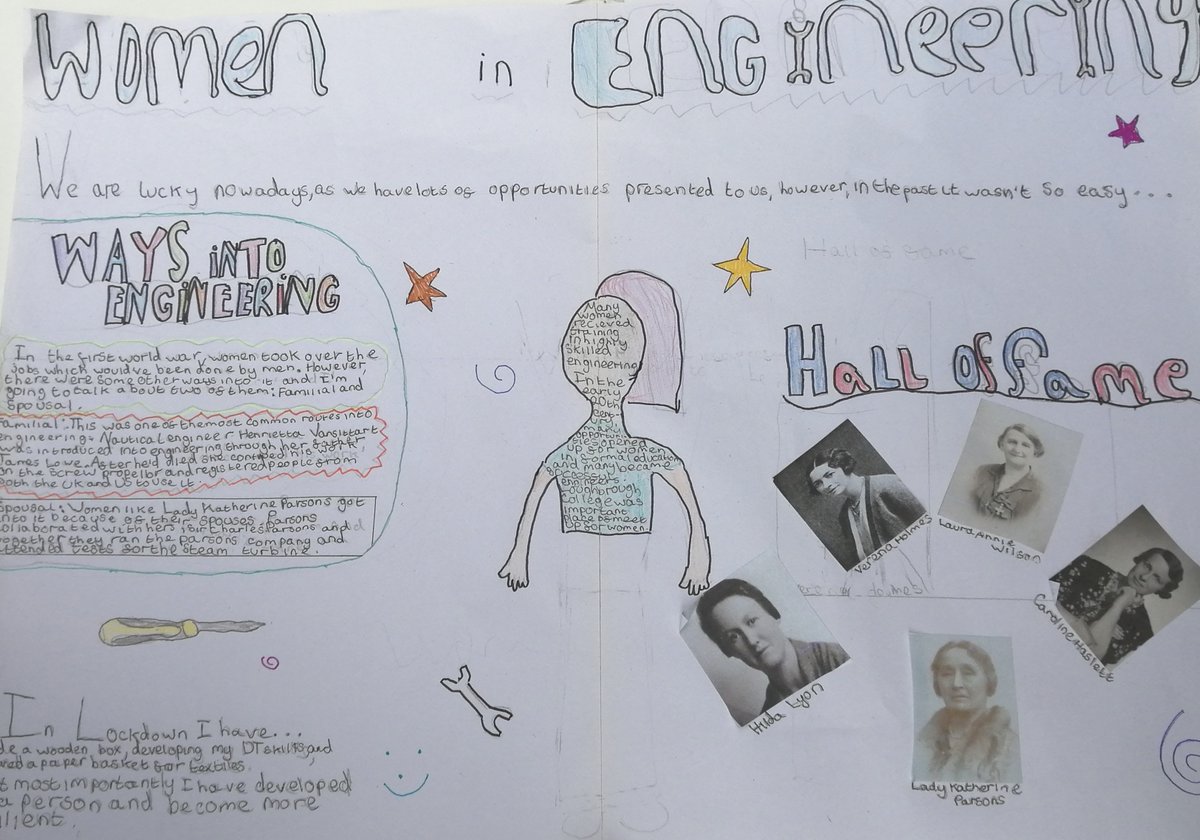 Women in Engineering
We are lucky nowadays, as we have lots of opportunities presented to us, however, in the past it wasn't so easy...
WAYS INTO
ENGINEERING
In the first world war, women took over the
jobs which would've been done by men. However,
there were some other ways into it and I'm
going to talk about two of them: Familial and
Spousal.
Familial: This was one of the most common routes into
engineering. Nautical engineer Henrietta Vansittart
was introduced into engineering through her father
James Lowe. After he'd died she contined his work
on the screw propellor and registered people from
both the UK and US to use it.
Spousal: Women like Lady Katherine Parsons got
into it because of their spouses. Parsons
collaborated with her Charles Parsons and
together they ran the parsons company and
attended tests for the steam turbine.
Many
women
recieved
training
in highly
skilled
engineering
In the
early
20th
up for women
in formal education
and many became
engineers
Loughbrough
College was
important
up for women.
Hall of fame
HALL of fame
Verena Holmes
Laura Annie
Wilson
Caroline Haslett
Hilda Lyon
Lady Katherine
Parsons
In Lockdown I have...
de a wooden box, developing my DT skills, and
red a paper basket for textiles.
t most importantly I have developed
a person and become more
ilient.